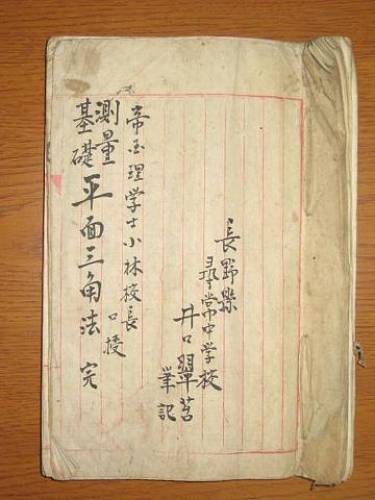 長野縣
尋常中学校
井口
筆記
帝国理学士小林校長
口授
測量
基礎
平面三角法 完